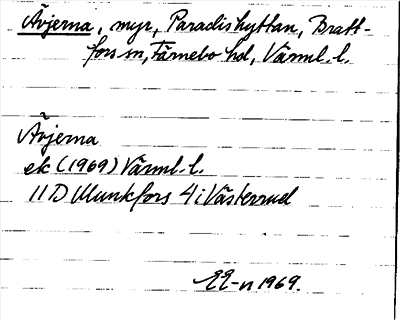 Åvjerna, myr, Paradishyttan, Bratt-
fors sn, Färnebo hd, Värml. l.
Åvjerna
ek (1969) Värml. l.
11D Munkfors 4i Västerrud
EE-n 1969.